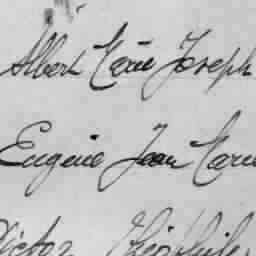 Albert Marie Joseph
Eugène Jean Marie
Victor Théophile